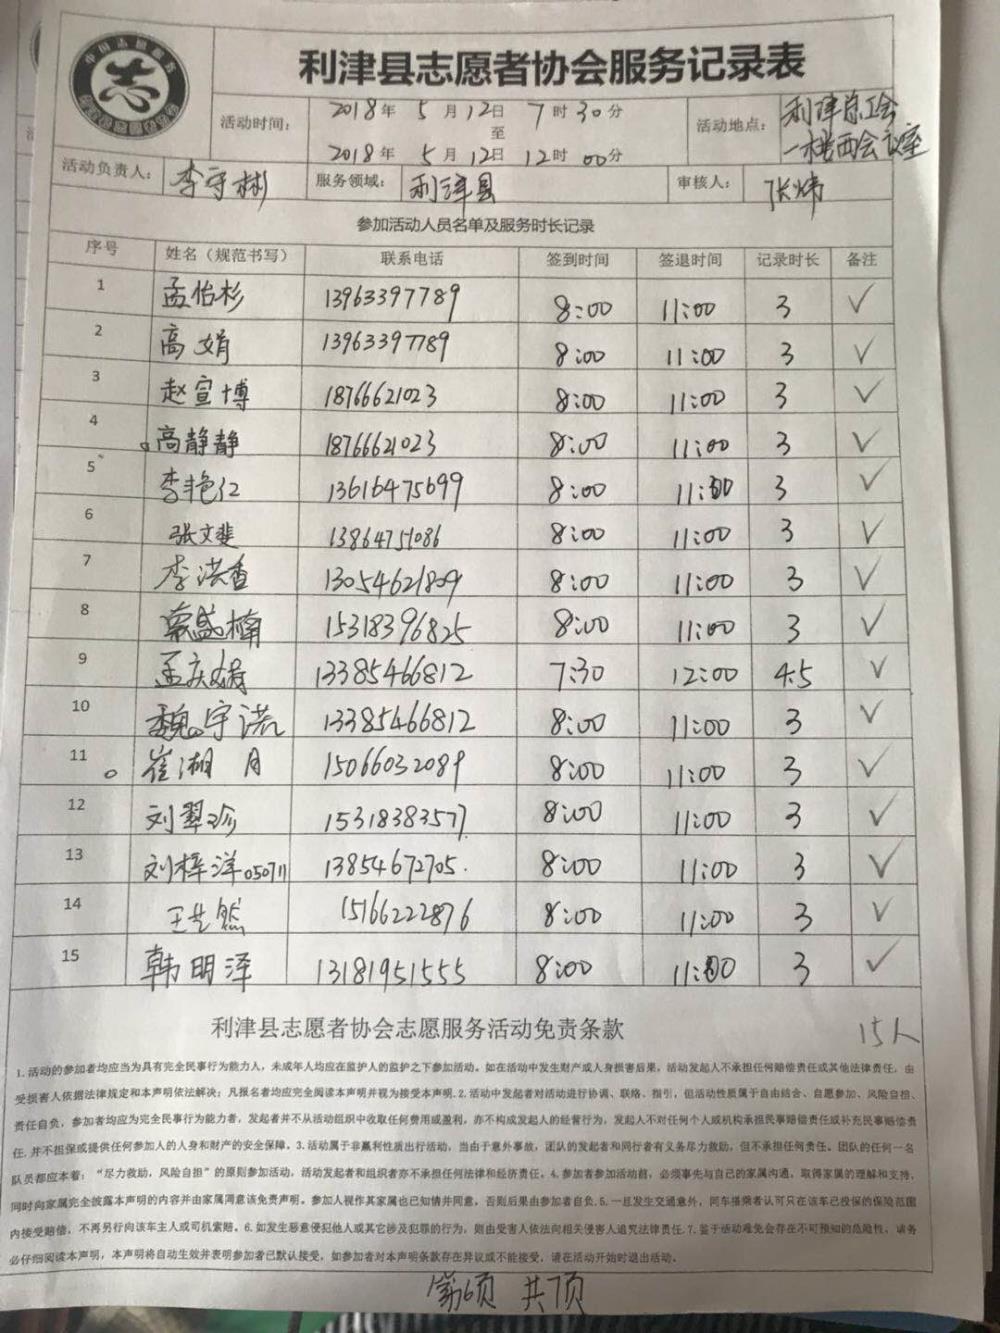 中国志愿服务
志
利津县志愿者协会服务记录表
活动时间： 2018年 5月12日 7时30分
至
2018年 5月12日 12时00分
活动地点： 利津总工会
一楼西会议室
活动负责人： 李守彬 服务领域： 利津县 审核人： 张炜
参加活动人员名单及服务时长记录
序号 姓名（规范书写） 联系电话 签到时间 签退时间 记录时长 备注
1 孟怡杉 13963397789 8:00 11:00 3 √
2 高娟 13963397789 8:00 11:00 3 √
3 赵宣博 18766621023 8:00 11:00 3 √
4 高静静 18766621023 8:00 11:00 3 √
5 李艳红 13616475699 8:00 11:00 3 √
6 张文斐 13864751086 8:00 11:00 3 √
7 李洪香 13054621809 8:00 11:00 3 √
8 盛楠 15318396825 8:00 11:00 3 √
9 孟庆娟 13385466812 7:30 12:00 4.5 √
10 魏宇洪 13385466812 8:00 11:00 3 √
11 崔湘月 15066032089 8:00 11:00 3 √
12 刘翠珍 15318383577 8:00 11:00 3 √
13 刘梓洋050711 13854672705. 8:00 11:00 3 √
14 王艺然 15166222876 8:00 11:00 3 √
15 韩明泽 13181951555 8:00 11:00 3 √
利津县志愿者协会志愿服务活动免责条款
15人
1.活动的参加者均应当为具有完全民事行为能力人，未成年人均应在监护人的监护之下参加活动。如在活动中发生财产或人身损害后果，活动发起人不承担任何赔偿责任或其他法律责任，由
受损害人依据法律规定和本声明依法解决；凡报名者均应完全阅读本声明并视为接受本声明.2.活动中发起者对活动进行协调、联络、指引，但活动性质属于自由结合、自愿参加、风险自担、
责任自负，参加者均应为完全民事行为能力者，发起者并不从活动组织中收取任何费用或盈利，亦不构成发起人的经营行为，发起人不对任何个人或机构承担民事赔偿责任或补充民事赔偿责
任,并不担保或提供任何参加人的人身和财产的安全保障。3.活动属于非赢利性质出行活动，当由于意外事故，团队的发起者和同行者有义务尽力救助，但不承担任何责任。团队的任何一名
队员都应本着：“尽力救助，风险自担”的原则参加活动，活动发起者和组织者亦不承担任何法律和经济责任。4.参加者参加活动前，必须事先与自己的家属沟通，取得家属的理解和支持，
同时向家属完全披露本声明的内容并由家属同意该免责声明。参加人视作其家属也已知情并同意，否则后果由参加者自负.5.一旦发生交通意外，同车搭乘者认可只在该车已投保的保险范围
内接受赔偿，不再另行向该车主人或司机索赔。6.如发生恶意侵犯他人或其它涉及犯罪的行为，则由受害人依法向相关侵害人追究法律责任.7.鉴于活动难免会存在不可预知的危险性，请务
必仔细阅读本声明，本声明将自动生效并表明参加者已默认接受，如参加者对本声明条款存在异议或不能接受，请在活动开始时退出活动。
第6页 共7页